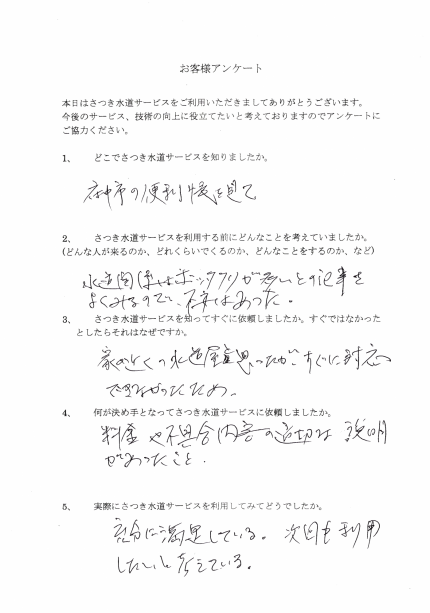 お客様アンケート
本日はさつき水道サービスをご利用いただきましてありがとうございます。
今後のサービス、技術の向上に役立てたいと考えておりますのでアンケートに
ご協力ください。
1、 どこでさつき水道サービスを知りましたか。
府中市の便利帳を見て
2、 さつき水道サービスを利用する前にどんなことを考えていましたか。
(どんな人が来るのか、どれくらいでくるのか、どんなことをするのか、など)
水道関係はボッタクリが多いとの記事を
よくみるので、不安はあった。
3、 さつき水道サービスを知ってすぐに依頼しましたか。すぐではなかった
としたらそれはなぜですか。
家の近くの水道屋 思ったが、すぐに対応
できなかったため。
4、 何が決め手となってさつき水道サービスに依頼しましたか。
料金や不具合内容の適切な説明
があったこと。
5、 実際にさつき水道サービスを利用してみてどうでしたか。
充分に満足している。次回も利用
したいと考えている。